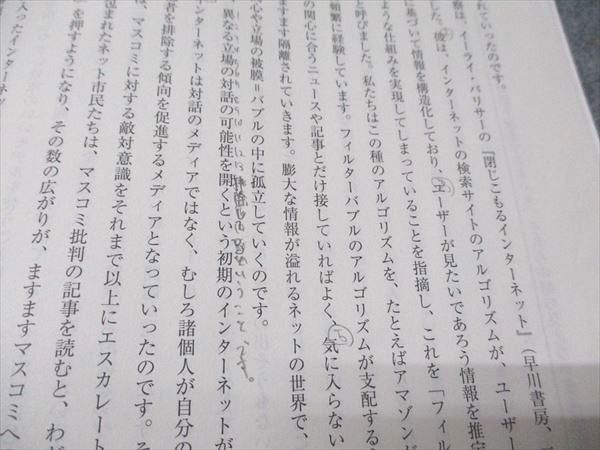 れていったのです。
察は、イーライ・パリサーの『閉じこもるインターネット』（早川書房、
した。彼は、インターネットの検索サイトのアルゴリズムが、ユーザー
に基づいて情報を構造化しており、ユーザーが見たいであろう情報を推定
ような仕組みを実現してしまっていることを指摘し、これを「フィル
と呼びました。私たちはこの種のアルゴリズムを、たとえばアマゾンド
頻繁に経験しています。フィルターバブルのアルゴリズムが支配する
の関心に合うニュースや記事とだけ接していればよく、気に入らない
ますます隔離されていきます。膨大な情報が溢れるネットの世界で、
心や立場の被膜＝バブルの中に孤立していくのです。
異なる立場の対話の可能性を開くという初期のインターネットが
ンターネットは対話のメディアではなく、むしろ諸個人が自分の
者を排除する傾向を促進するメディアとなっていったのです。そ
は、マスコミに対する敵対意識をそれまで以上にエスカレート
包まれたネット市民たちは、マスコミ批判の記事を読むと、わざ
を押すようになり、その数の広がりが、ますますマスコミへ
入ったインターネッ